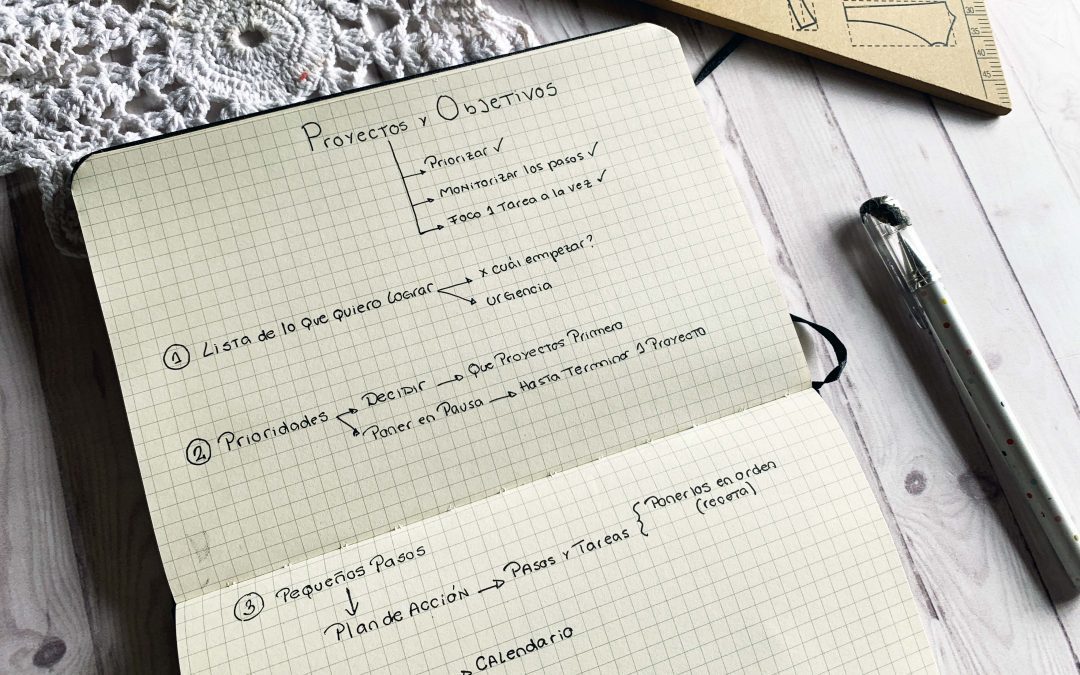 Proyectos y Objetivos
Priorizar ✓
Monitorizar los pasos ✓
Foco 1 Tarea a la vez ✓
1 Lista de lo que quiero lograr
x cuál empezar?
Urgencia
2 Prioridades
Decidir → Que Proyectos Primero
Poner en Pausa → Hasta Terminar 1 Proyecto
3 Pequeños Pasos
Plan de Acción → Pasos y Tareas
Ponerlos en orden
(receta)
Calendario
35
45